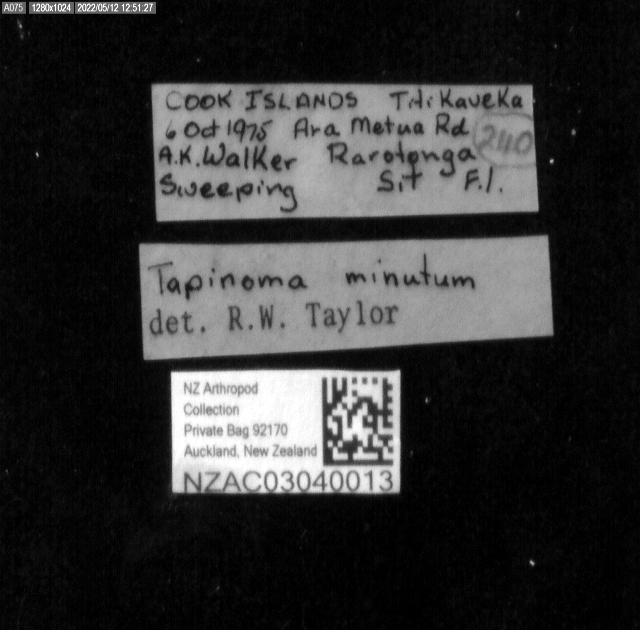 A075 1280x1024 2022/05/12 12:51:27
COOK ISLANDS Titikaveka
6 Oct 1975 Ara Metua Rd
240
A.K. Walker Rarotonga
Sweeping Sit F.1.
Tapinoma minutum
det. R.W. Taylor
NZ Arthropod
Collection
Private Bag 92170
Auckland, New Zealand
NZAC03040013